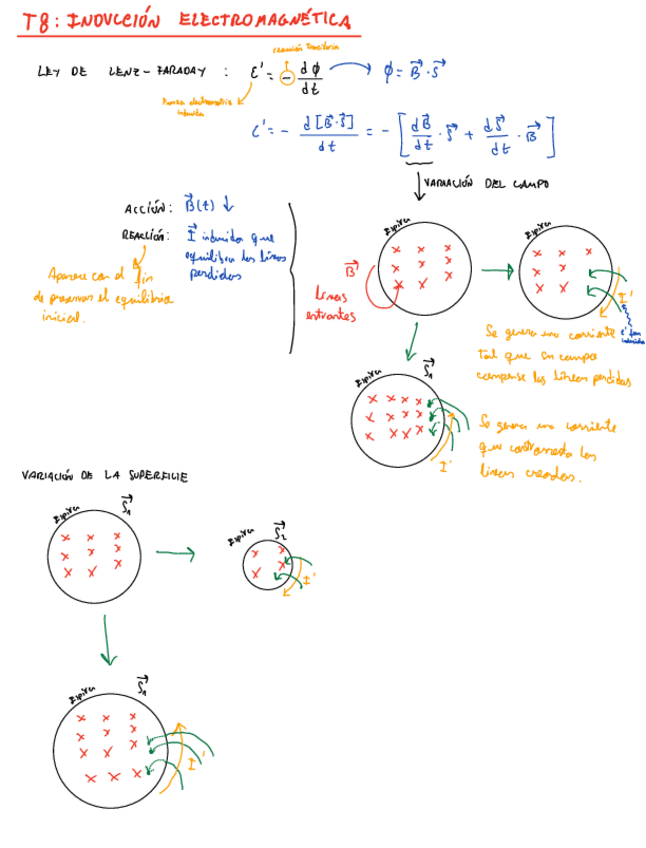 T8: INDUCCIÓN ELECTROMAGNÉTICA
reacción transitoria
LEY DE LENZ-FARADAY : ε' = - dϕ/dt → ϕ = B⃗·S⃗
Fuerza electromotriz
inducida
ε' = - d[B⃗·S⃗]/dt = - [dB⃗/dt · S⃗ + dS⃗/dt · B⃗]
VARIACIÓN DEL CAMPO
ACCIÓN: B⃗(t) ↓
REACCIÓN: I⃗ inducida que
equilibra las líneas
perdidas
Aparece con el fin
de preservar el equilibrio
inicial.
Espira
B⃗
Líneas
entrantes
Espira
I'
ε' fem
inducida
Se genera una corriente
tal que su campo
compense las líneas perdidas
Espira
S⃗₁
I'
Se genera una corriente
que contrarresta las
líneas creadas.
VARIACIÓN DE LA SUPERFICIE
Espira
S⃗₁
Espira
S⃗₂
I'
Espira
S⃗₁
I'